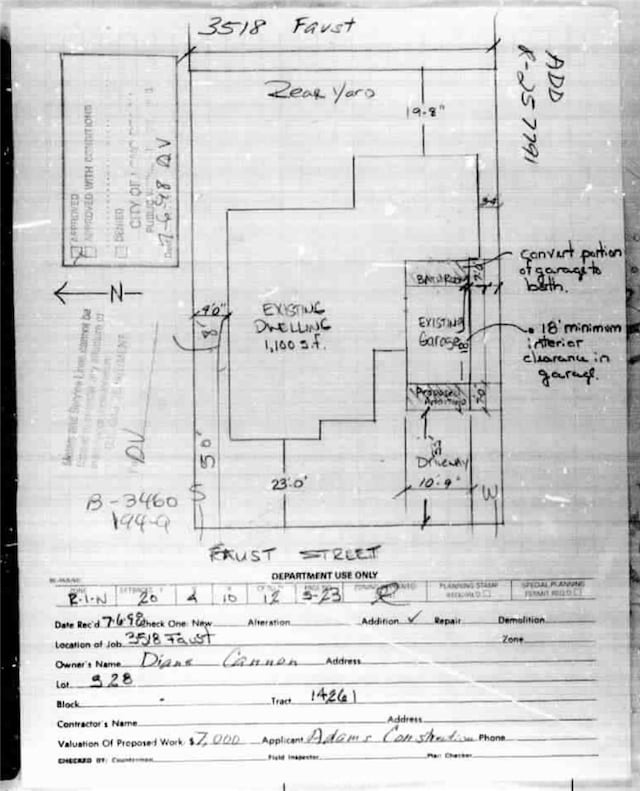 3518 Faust
ADD
R-257791
Rear Yard
19'-8"
APPROVED
APPROVED WITH CONDITIONS
DENIED
CITY OF
PUBLIC
Date 7-6-98 DV
convert portion
of garage to
bath.
BATHROOM
N
9'0"
8'
EXISTING
DWELLING
1,100 s.f.
EXISTING
Garage
18'
• 18' minimum
interior
clearance in
garage.
Proposed
Addition
DV
23'-0"
Driveway
10'-9"
50'
S
W
B-3460
194-9
FAUST STREET
DEPARTMENT USE ONLY
ZONE
PLANNING STAMP
REQUIRED
SPECIAL PLANNING
PERMIT REQ'D
R-1-N 20 4 10 12 3-23
Date Rec'd 7-6-98 Check One: New Alteration Addition ✓ Repair Demolition
Location of Job 3518 Faust Zone
Owner's Name Diane Cannon Address
Lot 328
Block Tract 14261
Contractor's Name Address
Valuation Of Proposed Work $ 7,000 Applicant Adams Construction Phone
CHECKED BY: Counterman Field Inspector Plan Checker